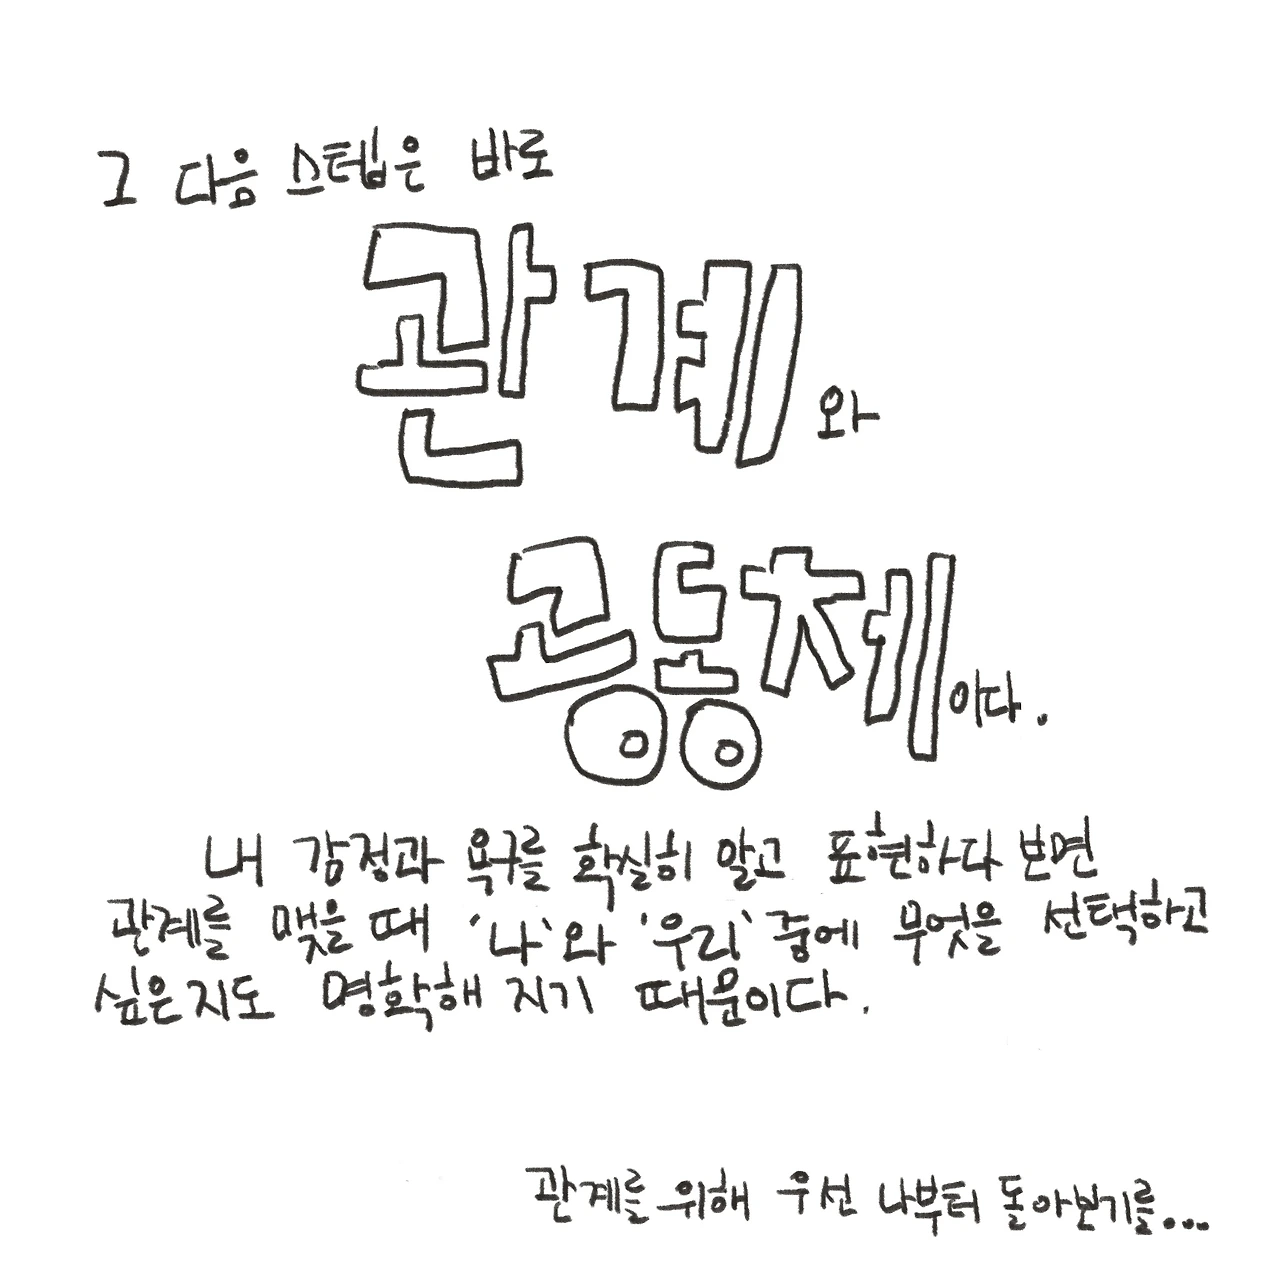 그 다음 스텝은 바로
관계와
공동체이다.
내 감정과 욕구를 확실히 알고 표현하다 보면
관계를 맺을 때 '나'와 '우리' 중에 무엇을 선택하고
싶은지도 명확해 지기 때문이다.
관계를 위해 우선 나부터 돌아보기를...